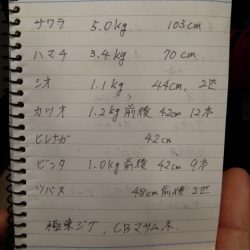 サワラ 5.0kg 103cm
ハマチ 3.4kg 70cm
シオ 1.1kg 44cm, 2匹
カツオ 1.2kg前後 42cm 12本
ヒレナガ 42cm
ビンタ 1.0kg前後 42cm 9本
ツバス 48cm前後 2匹
極東ジグ、CBマサムネ.